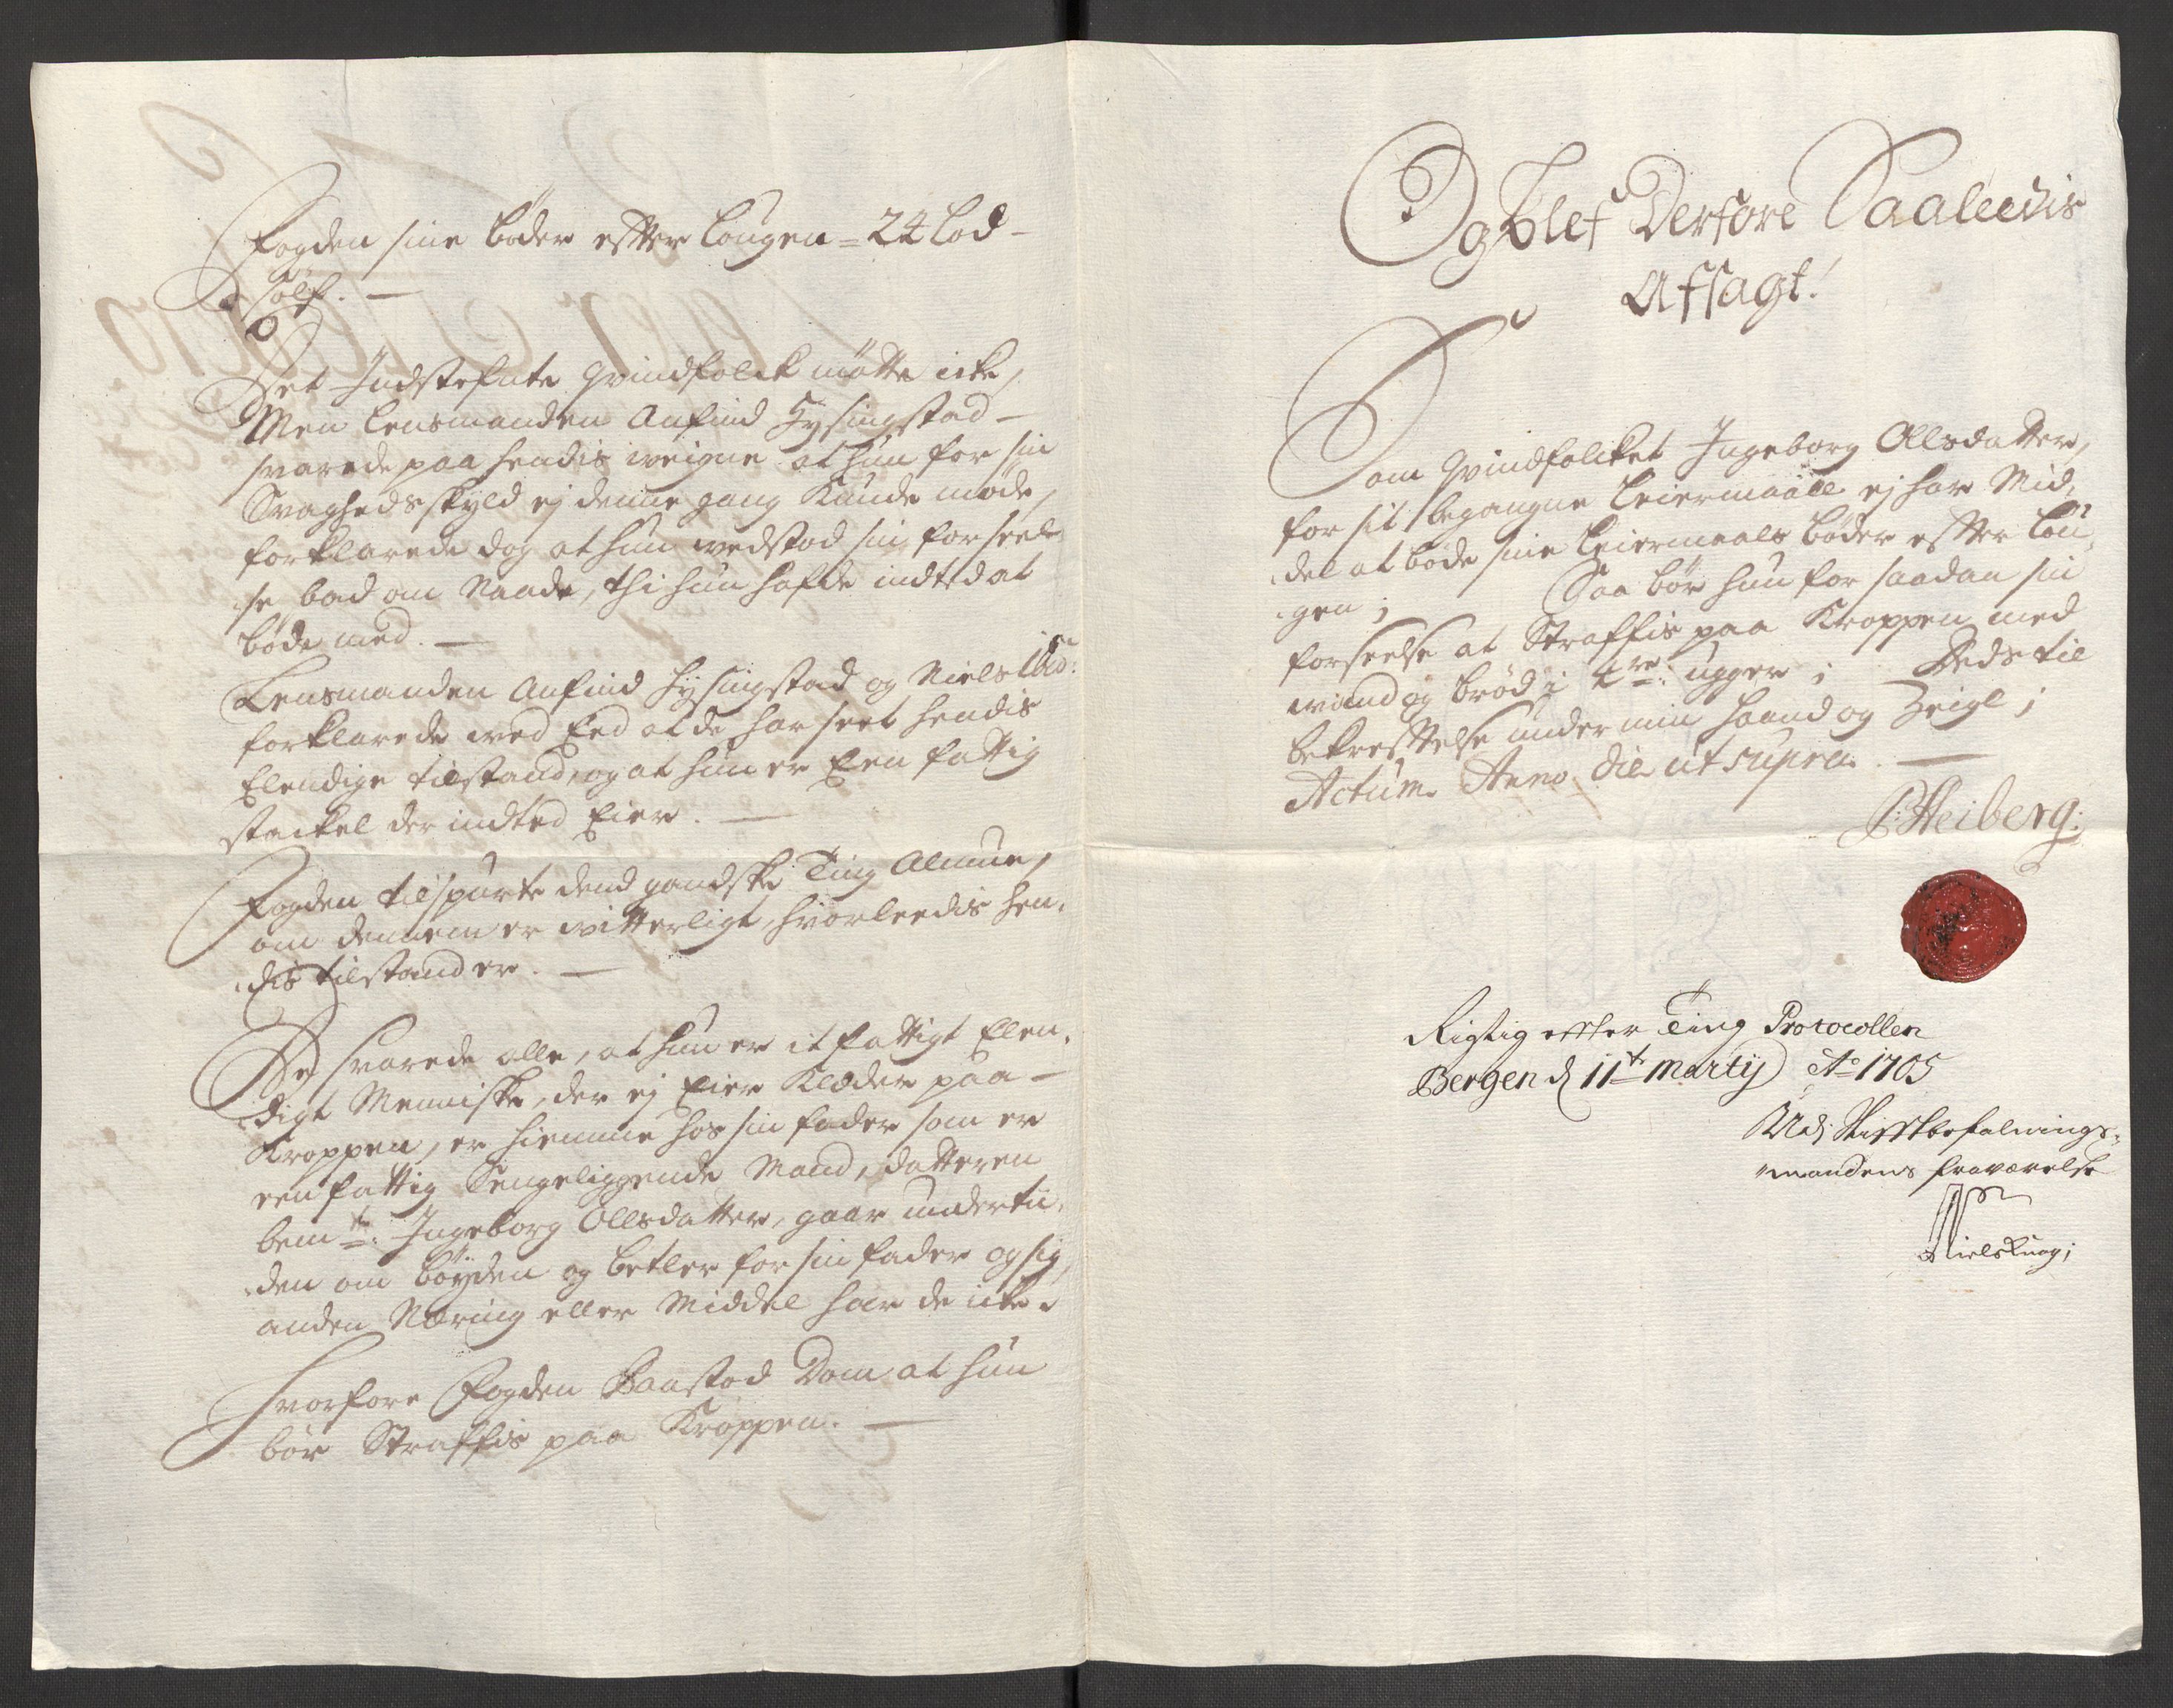 Fogden sine bøder effter Lougen = 24 Lod -
Sølf. —
Det Indstefnte qvindfolck møtte icke,
Men Lensmanden Anfind Hysingstad -
svarede paa hendis weigne at hun for sin
Svaghedsskyld ej denne gang Kunde møde,
forklarede dog at hun wedstod sin forseel-
se, bad om Naade, thi hun hafde indted at
bøde med. —
Lensmanden Anfind Hysingstad og Niels
forklarede wed Eed at de har seet hendis
Elendige tilstand, og at hun er Een fattig
stackel der indted Eier. —
Fogden tilspurte dend gandske Ting Almue,
om dennem er vitterligt, hvorleedis hen-
dis tilstand er. —
De svarede alle, at hun er it fattigt Elen-
digt Menniske, der ej Eier Klæder paa -
Kroppen, er hiemme hos sin fader som er
een fattig Sengeliggende Mand, datteren
bem.te: Ingeborg Ollsdatter, gaar undertii-
den om bøyden og betler for sin fader og sig,
anden Næring eller Middel har de icke.
Hvorfore Fogden Paastod Dom at hun
bør Straffis paa Kroppen. —
Og blef Derfore Saaleedis
Afsagt!
Som qvindfolcket Ingeborg Ollsdatter,
for sit begangne Leiermaall ej har Mid-
del at bøde sine Leiermaals bøder effter Lou-
gen; Saa bør hun for saadan sin
forseelse at Straffis paa Kroppen med
wand og brød i 4re: ugger; Deds til
bekrefftelse under min haand og Zeigl;
Actum Anno Die ut supra. —
P: Heiberg:
Rigtig effter Ting Protocollen
Bergen d 11t Martij Ao 1705
Udj Stifftbefalnings-
mandens fraværelse
Niels Knag;